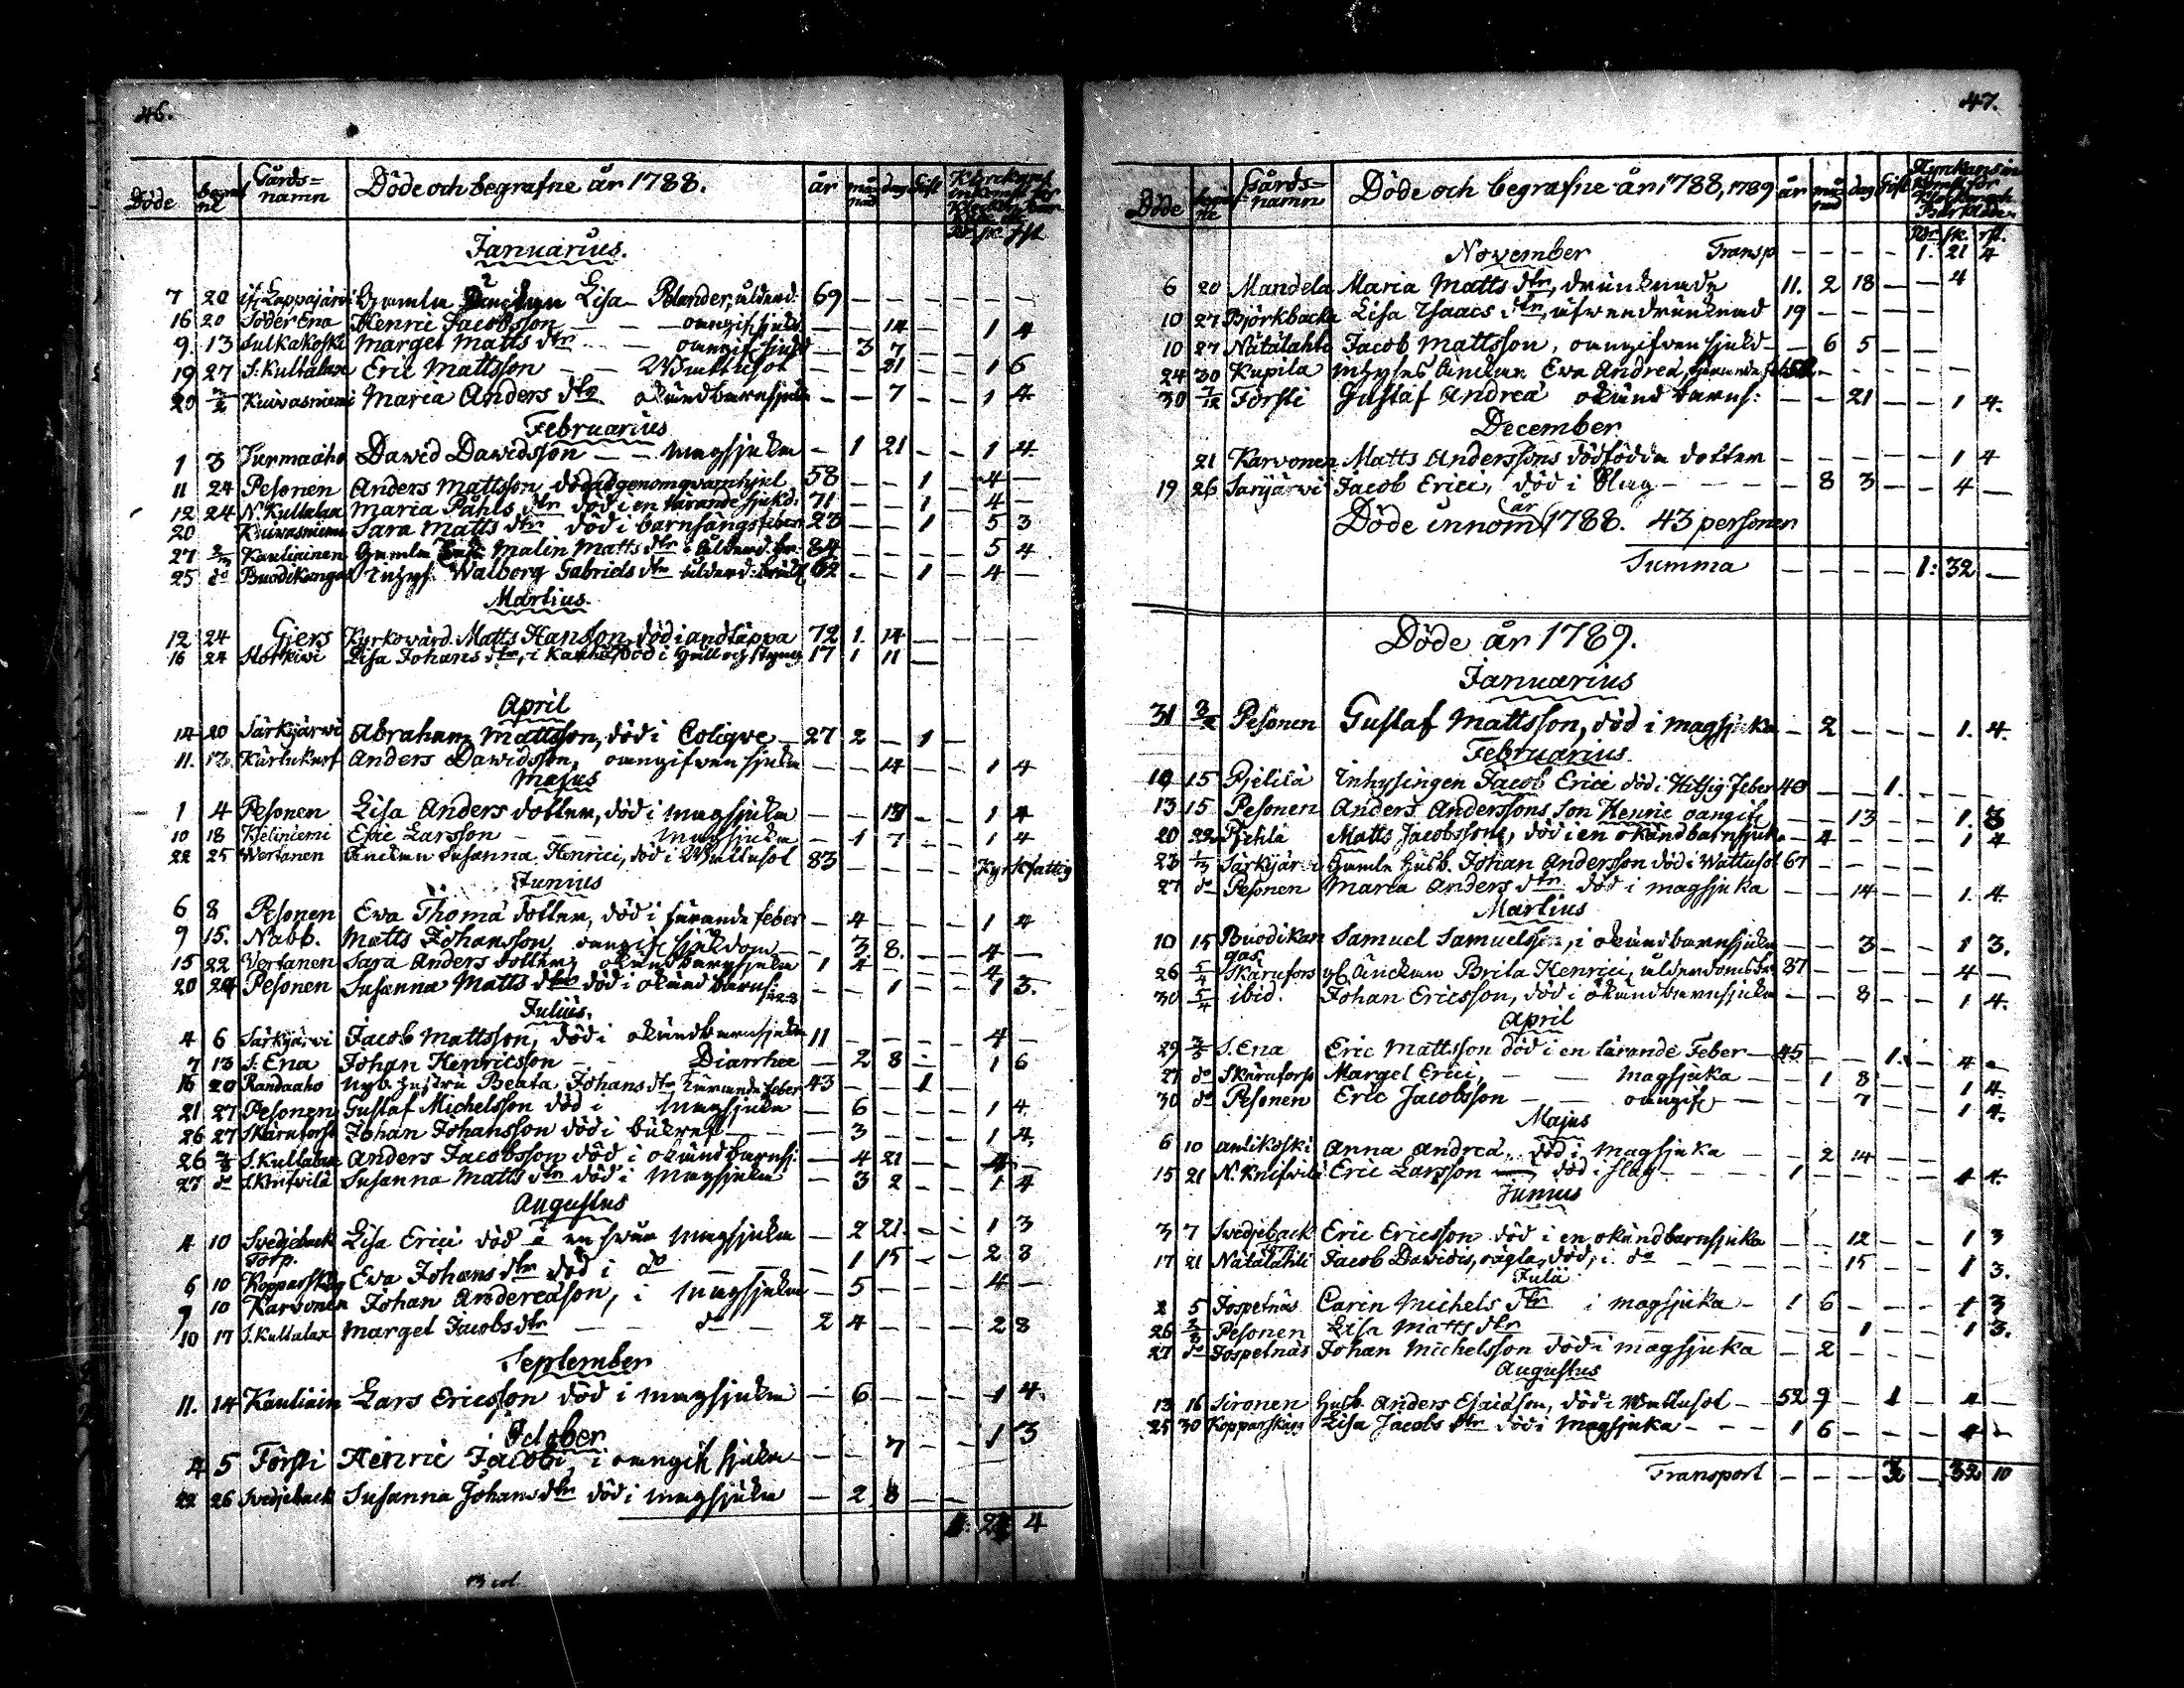 46.
Döde begrafne Gårds= namn Döde och begrafne år 1788. år månad dag Gift
Januarius.
7 20 Lappajärvi Gamla Enckan Lisa Polander, ålderd: 69 — — — —
16 20 Söder Ena Henric Jacobsson — — — oangif. sjukd — — 14 — — 1 4
9. 13 Sulkakoski Marget Matts dtr — — oangif sjukd — 3 7 — —
19 27 S: Kultalax Eric Mattsson — — Wattusot — — 21 — — 1 6
20 2/2 Kuivasniemi Maria Anders dtr okänd barnsjuka — — 7 — — 1 4
Februarius
1 3 Surmaaho Dawid Dawidsson — — magsjuka — 1 21 — — 1 4
11 24 Pesonen Anders Mattsson död 58 — — 1 — 4 —
12 24 N. Kultalax Maria Påhls dtr död i en tärande sjukd: 71 — — 1 — 4 —
20 Kuivasniemi Sara Matts dtr död i barnsängsfeber 23 — — 1 5 3
27 2/3 Kauliainen Gamla Malin Matts dtr ålderd. 84 — — — 5 4
25 do Buodikangas Inhys. Walborg Gabriels dtr ålderd: 62 — — 1 — 4 —
Martius.
12 24 Gjers Kyrkovärd. Matts Hansson, död i andtäppa 72 1. 14 — — — —
16 24 Storkivi Lisa Johans dtr, död i håll och styng 17 1 11 —
April
14 20 Särkijärvi Abraham Mattsson, död i Coliqve — 27 2 — 1 —
11. 13. Anders Dawidsson, oangifven sjuka — — 14 — — 1 4
Majus
1 4 Pesonen Lisa Anders dotter, död i magsjuka — — 13 — — 1 4
10 18 Kjeliniemi Eric Larsson — — — magsjuka — 1 7 — — 1 4
22 25 Vertanen Änckan Susanna Henrici, död i Wattusot 83 — — — — Kyrkfattig
Junius
6 8 Pesonen Eva Thomæ dotter, död i tärande feber — 4 — — — 1 4
9 15. Nabb. Matts Johansson, oangif sjukdom — — 3. 8. — — 4 —
15 22 Vertanen Sara Anders dotter, okänd barnsjuka 1 4 — — — 4
20 24 Pesonen Susanna Matts dtr död i okänd barnsj: — — 1 — — 1 3.
Julius.
4 6 Särkijärvi Jacob Mattsson, död i okänd barnsjuka 11 — — — — 4 —
7 13 S. Ena Johan Henricsson — — Diarrhee — 2 8 — — 1 6
16 20 Randaaho Nyb. hustru Beata Johans dtr tärande feber 43 — — 1
21 27 Pesonen Gustaf Michelsson död i magsjuka — 6 — — — 1 4
26 27 Skärnforss Johan Johansson död i bukref — — — 3 — — — 1 4.
26 2/8 S. Kultalax Anders Jacobsson död i okänd barnsj: — 4 21 — — 4 —
27 do S. Knifvilä Susanna Matts dtr död i magsjuka — 3 2 — — 1 4
Augustus
4 10 Svedjeback Torp. Lisa Erici död i en svår magsjuka — 2 21. — — 1 3
6 10 Kopparskog Eva Johans dtr död i do — — — 1 15 — — 2 8
9 10 Karvonen Johan Andereason, i magsjuka — 5 — — — 4 —
10 17 S. Kultalax Marget Jacobs dtr — — do — 2 4 — — — 2 8
September
11. 14 Kauliain Lars Ericsson död i magsjuka — 6 — — — 1 4.
October
4 5 Försti Henric Jacobi, i oangif sjuka — — 7 — — 1 3
22 26 Svedjeback Susanna Johans dtr död i magsjuka — 2 8 — —
1: 21 4
47.
Döde Gårds= namn Döde och begrafne år 1788, 1789 år månad dag Gift Kyrkans in
Rdr sk. rst.
November Transp — — — — 1. 21 4
6 20 Mandela Maria Matts dtr, drunknade 11. 2 18 — — 4
10 27 Björkbacka Lisa Isaacs dtr, äfven drunknad 19 — — — —
10 27 Nätälahti Jacob Mattsson, oangifven sjukd — — 6 5 — —
24 30 Kupila Inhyses Änckan Eva Andreæ, — — — —
30 7/12 Försti Gustaf Andreæ okänd barns: — — 21 — — 1 4.
December
21 Karvonen Matts Anderssons dödfödda dotter — — — — — 1 4
19 26 Sarijärvi Jacob Erici, död i Slag — — — — 8 3 — — 4 —
Döde innom år 1788. 43 personer
Summa — — — — 1: 32 —
Döde år 1789.
Januarius
31 8/2 Pesonen Gustaf Mattsson, död i magsjuka — 2 — — — 1. 4.
Februarius
10 15 Pjelilä Inhysingen Jacob Erici död i Hitsig Feber 40 — — 1. — — —
13 15 Pesonen Anders Anderssons son Henric oangif — — 13 — — 1. 3
20 22 Pjehlä Matts Jacobsson, död i en okänd barnsjuk — 4 — — — 1 4
23 1/3 Särkijärvi Gamla Husb. Johan Andersson död i Wattusot 67 — — — —
27 do Pesonen Maria Anders dtr död i magsjuka — — 14 — — 1. 4
Martius
10 15 Buodikangas Samuel Samuelsson, i okänd barnsjuka — — 3 — — 1 3.
26 5/4 Skärnfors Änckan Brita Henrici, ålderdoms 87 — — — — 4 —
30 5/4 ibid. Johan Ericsson, död i okänd barnsjuka — — 8 — — 1 4.
April
29 3/5 S. Ena Eric Mattsson död i en tärande Feber — 45 — — 1. — 4 —
27 do Skärnforss Marget Erici, — — magsjuka — — 1 8 — — 1 4
30 do Pesonen Eric Jacobsson — — oangif — — — 7 — — 1 4.
Majus
6 10 Anlikoski Anna Andreæ, död i magsjuka — — 2 14 — —
15 21 N. Knifvilä Eric Larsson död i slag — — 1 — — — — 1 4.
Junius
3 7 Svedjeback Eric Ericsson död i en okänd barnsjuka — — 12 — — 1 3
17 21 Nätälahti Jacob Davidis, oägta, död, i do — — — 15 — — 1 3.
Julii
2 5 Jospelnäs Carin Michels dtr i magsjuka — 1 6 — — — 1 3
26 2/8 Pesonen Lisa Matts dtr — — — — — — 1 — — 1 3.
27 do Jospelnäs Johan Michelsson död i magsjuka — 2 — — —
Augustus
13 16 Sironen Husb. Anders Esaiason, död i Wattusot — 52 9 — 1 — 4 —
25 30 Kopparskog Lisa Jacobs dtr död i magsjuka — — — 1 6 — — — 4 —
Transport — — — 3 — 32 10